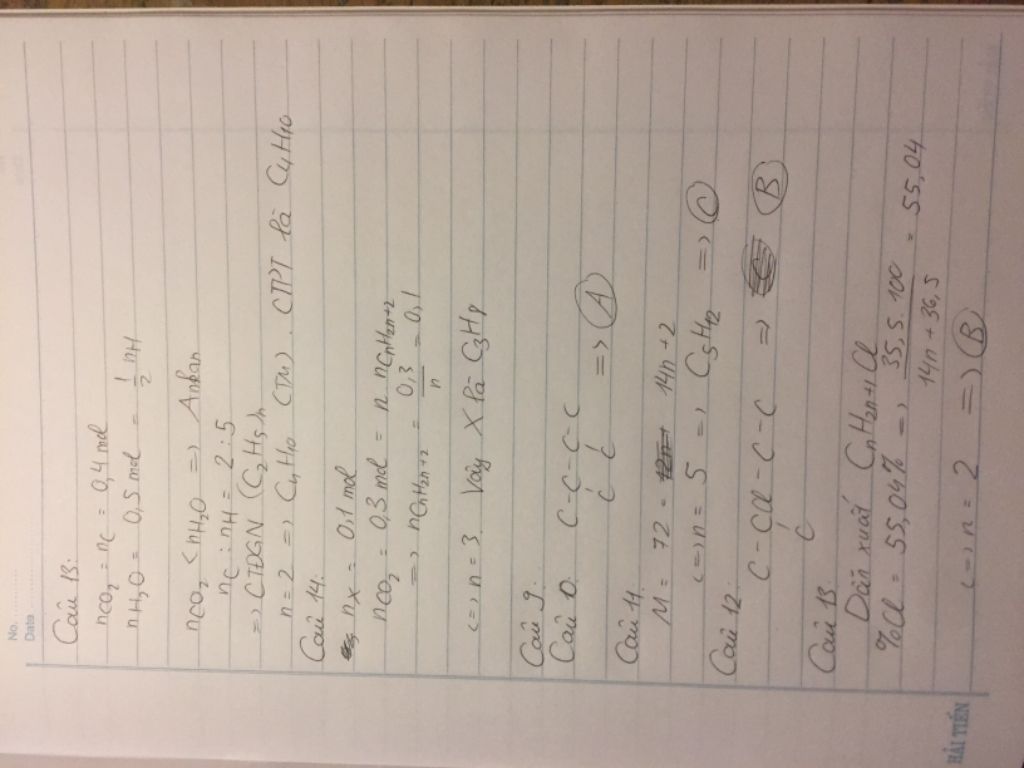 No. ..............
Date ..............
Câu 13:
nCO₂ = nC = 0,4 mol
nH₂O = 0,5 mol = 1/2 nH
nCO₂ < nH₂O => Ankan
nC : nH = 2 : 5
=> CTĐGN (C₂H₅)n
n = 2 => C₄H₁₀ (TM). CTPT là C₄H₁₀
Câu 14.
nX = 0,1 mol
nCO₂ = 0,3 mol = n. nCnH2n+2
=> nCnH2n+2 = 0,3/n = 0,1
<=> n = 3 Vậy X là C₃H₈
Câu 9:
Câu 0. C - C - C - C
C C => A
Câu 11.
M = 72 = 14n + 2
<=> n = 5 => C₅H₁₂ => C
Câu 12.
C - CCl - C - C => B
C
Câu 13.
Dẫn xuất CnH2n+1Cl
%Cl = 55,04% => 35,5 . 100 / 14n + 36,5 = 55,04
<=> n = 2 => B
HẢI TIẾN